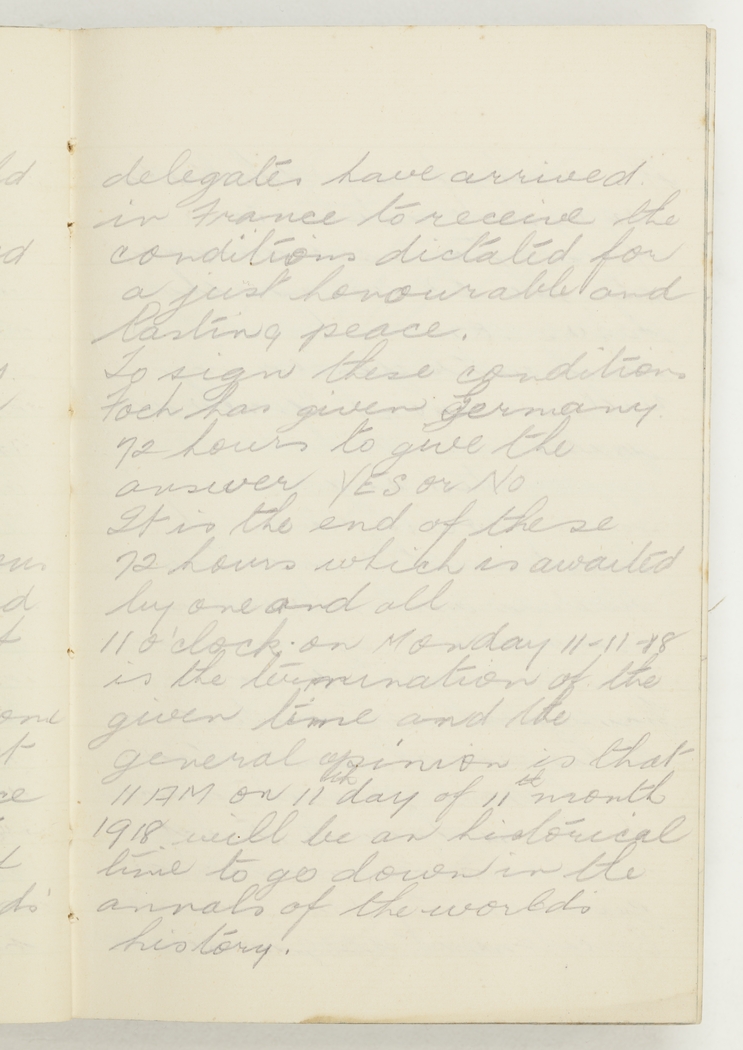 delegates have arrived
in France to receive the
conditions dictated for
a just honourable and
lasting peace.
To sign these conditions
Foch has given Germany
72 hours to give the
answer YES or NO
It is the end of these
72 hours which is awaited
by one and all
11 o'clock on Monday 11-11-18
is the termination of the
given time and the
general opinion is that
11 AM on 11th day of 11th month
1918 will be an historical
time to go down in the
annals of the worlds
history.